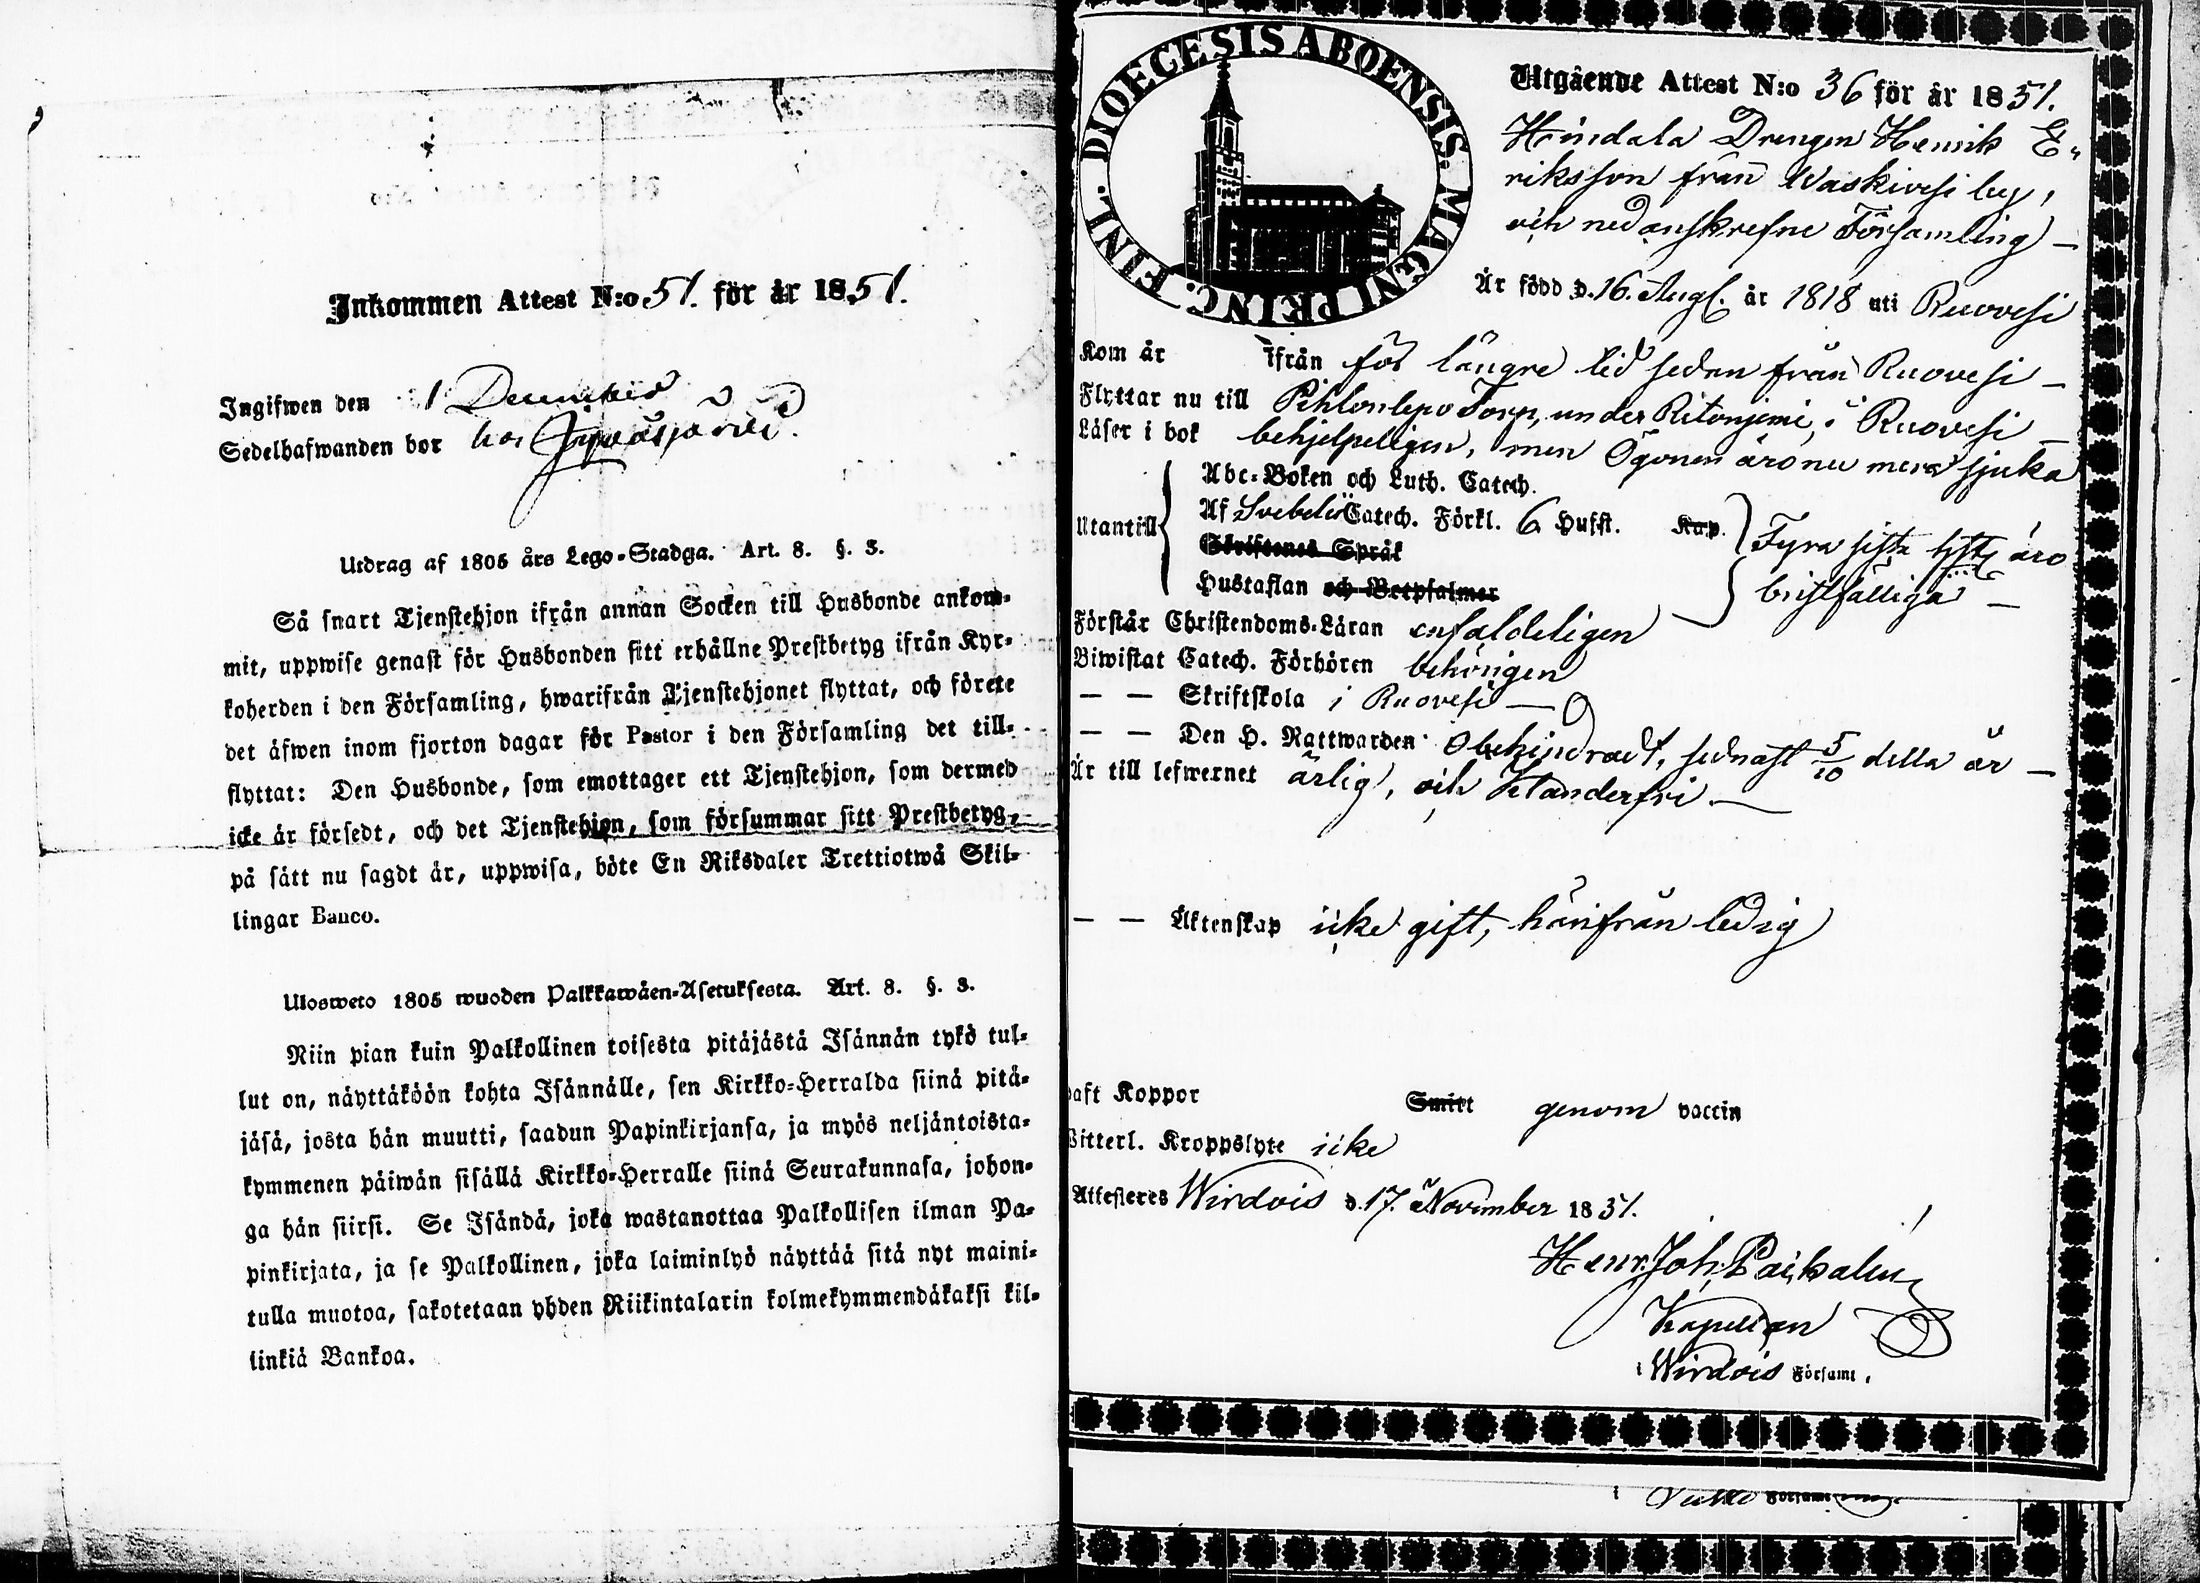 Inkommen Attest N:o 51. för år 1851.
Ingifwen den 1 December
Sedelhafwanden bor hos
Utdrag af 1805 års Lego-Stadga. Art. 8. §. 3.
Så snart Tjenstehjon ifrån annan Socken till Husbonde ankom-
mit, uppwise genast för Husbonden sitt erhållne Prestbetyg ifrån Kyr-
koherden i den Församling, hwarifrån Tjenstehjonet flyttat, och förete
det äfwen inom fjorton dagar för Pastor i den Församling det till-
flyttat: Den Husbonde, som emottager ett Tjenstehjon, som dermed
icke är försedt, och det Tjenstehjon, som försummar sitt Prestbetyg,
på sätt nu sagdt är, uppwisa, böte En Riksdaler Trettiotwå Skil-
lingar Banco.
Ulosweto 1805 wuoden Palkkawäen-Asetuksesta. Art. 8. §. 3.
Niin pian kuin Palkollinen toisesta pitäjästä Isännän tykö tul-
lut on, näyttäköön kohta Isännälle, sen Kirkko-Herralda siinä pitä-
jäsä, josta hän muutti, saadun Papinkirjansa, ja myös neljäntoista-
kymmenen päiwän sisällä Kirkko-Herralle siinä Seurakunnasa, johon-
ga hän siirsi. Se Isändä, joka wastanottaa Palkollisen ilman Pa-
pinkirjata, ja se Palkollinen, joka laiminlyö näyttää sitä nyt maini-
tulla muotoa, sakotetaan yhden Riikintalarin kolmekymmendäkaksi kil-
linkiä Bankoa.
DIOECESIS ABOENSIS. MAGNI PRINC. FINL.
Utgående Attest N:o 36 för år 1851.
Hindala Drengen Henrik E„
riksson från Waskivesi by,
och nedanskrefne Församling —
Är född d. 16. Aug. år 1818 uti Ruovesi
Kom år ifrån för längre tid sedan från Ruovesi —
Flyttar nu till Torp, under Ritoniemi, i Ruovesi —
Läser i bok behjelpeligen, men Ögonen äro nu mera sjuka
Abc-Boken och Luth. Catech.
Utantill Af Svebelii Catech. Förkl. 6 Hufst. Kap. Fyra sista äro
Skriftenes Språk
Hustaflan och Botpsalmer bristfälliga —
Förstår Christendoms-Läran enfaldeligen
Biwistat Catech. Förhören behörigen
— — Skriftskola i Ruovesi —
— — Den H. Nattwarden Obehindradt, sednast 5/10 detta år —
Är till lefwernet ärlig, och Klanderfri. —
— — Äktenskap icke gift, härifrån ledig
haft Koppor Smitt genom vaccin
Witterl. Kroppslyte icke
Attesteres Wirdois d. 17. November 1851.
Henr. Joh.
Kapellan
i Wirdois Församl.
i Församl.